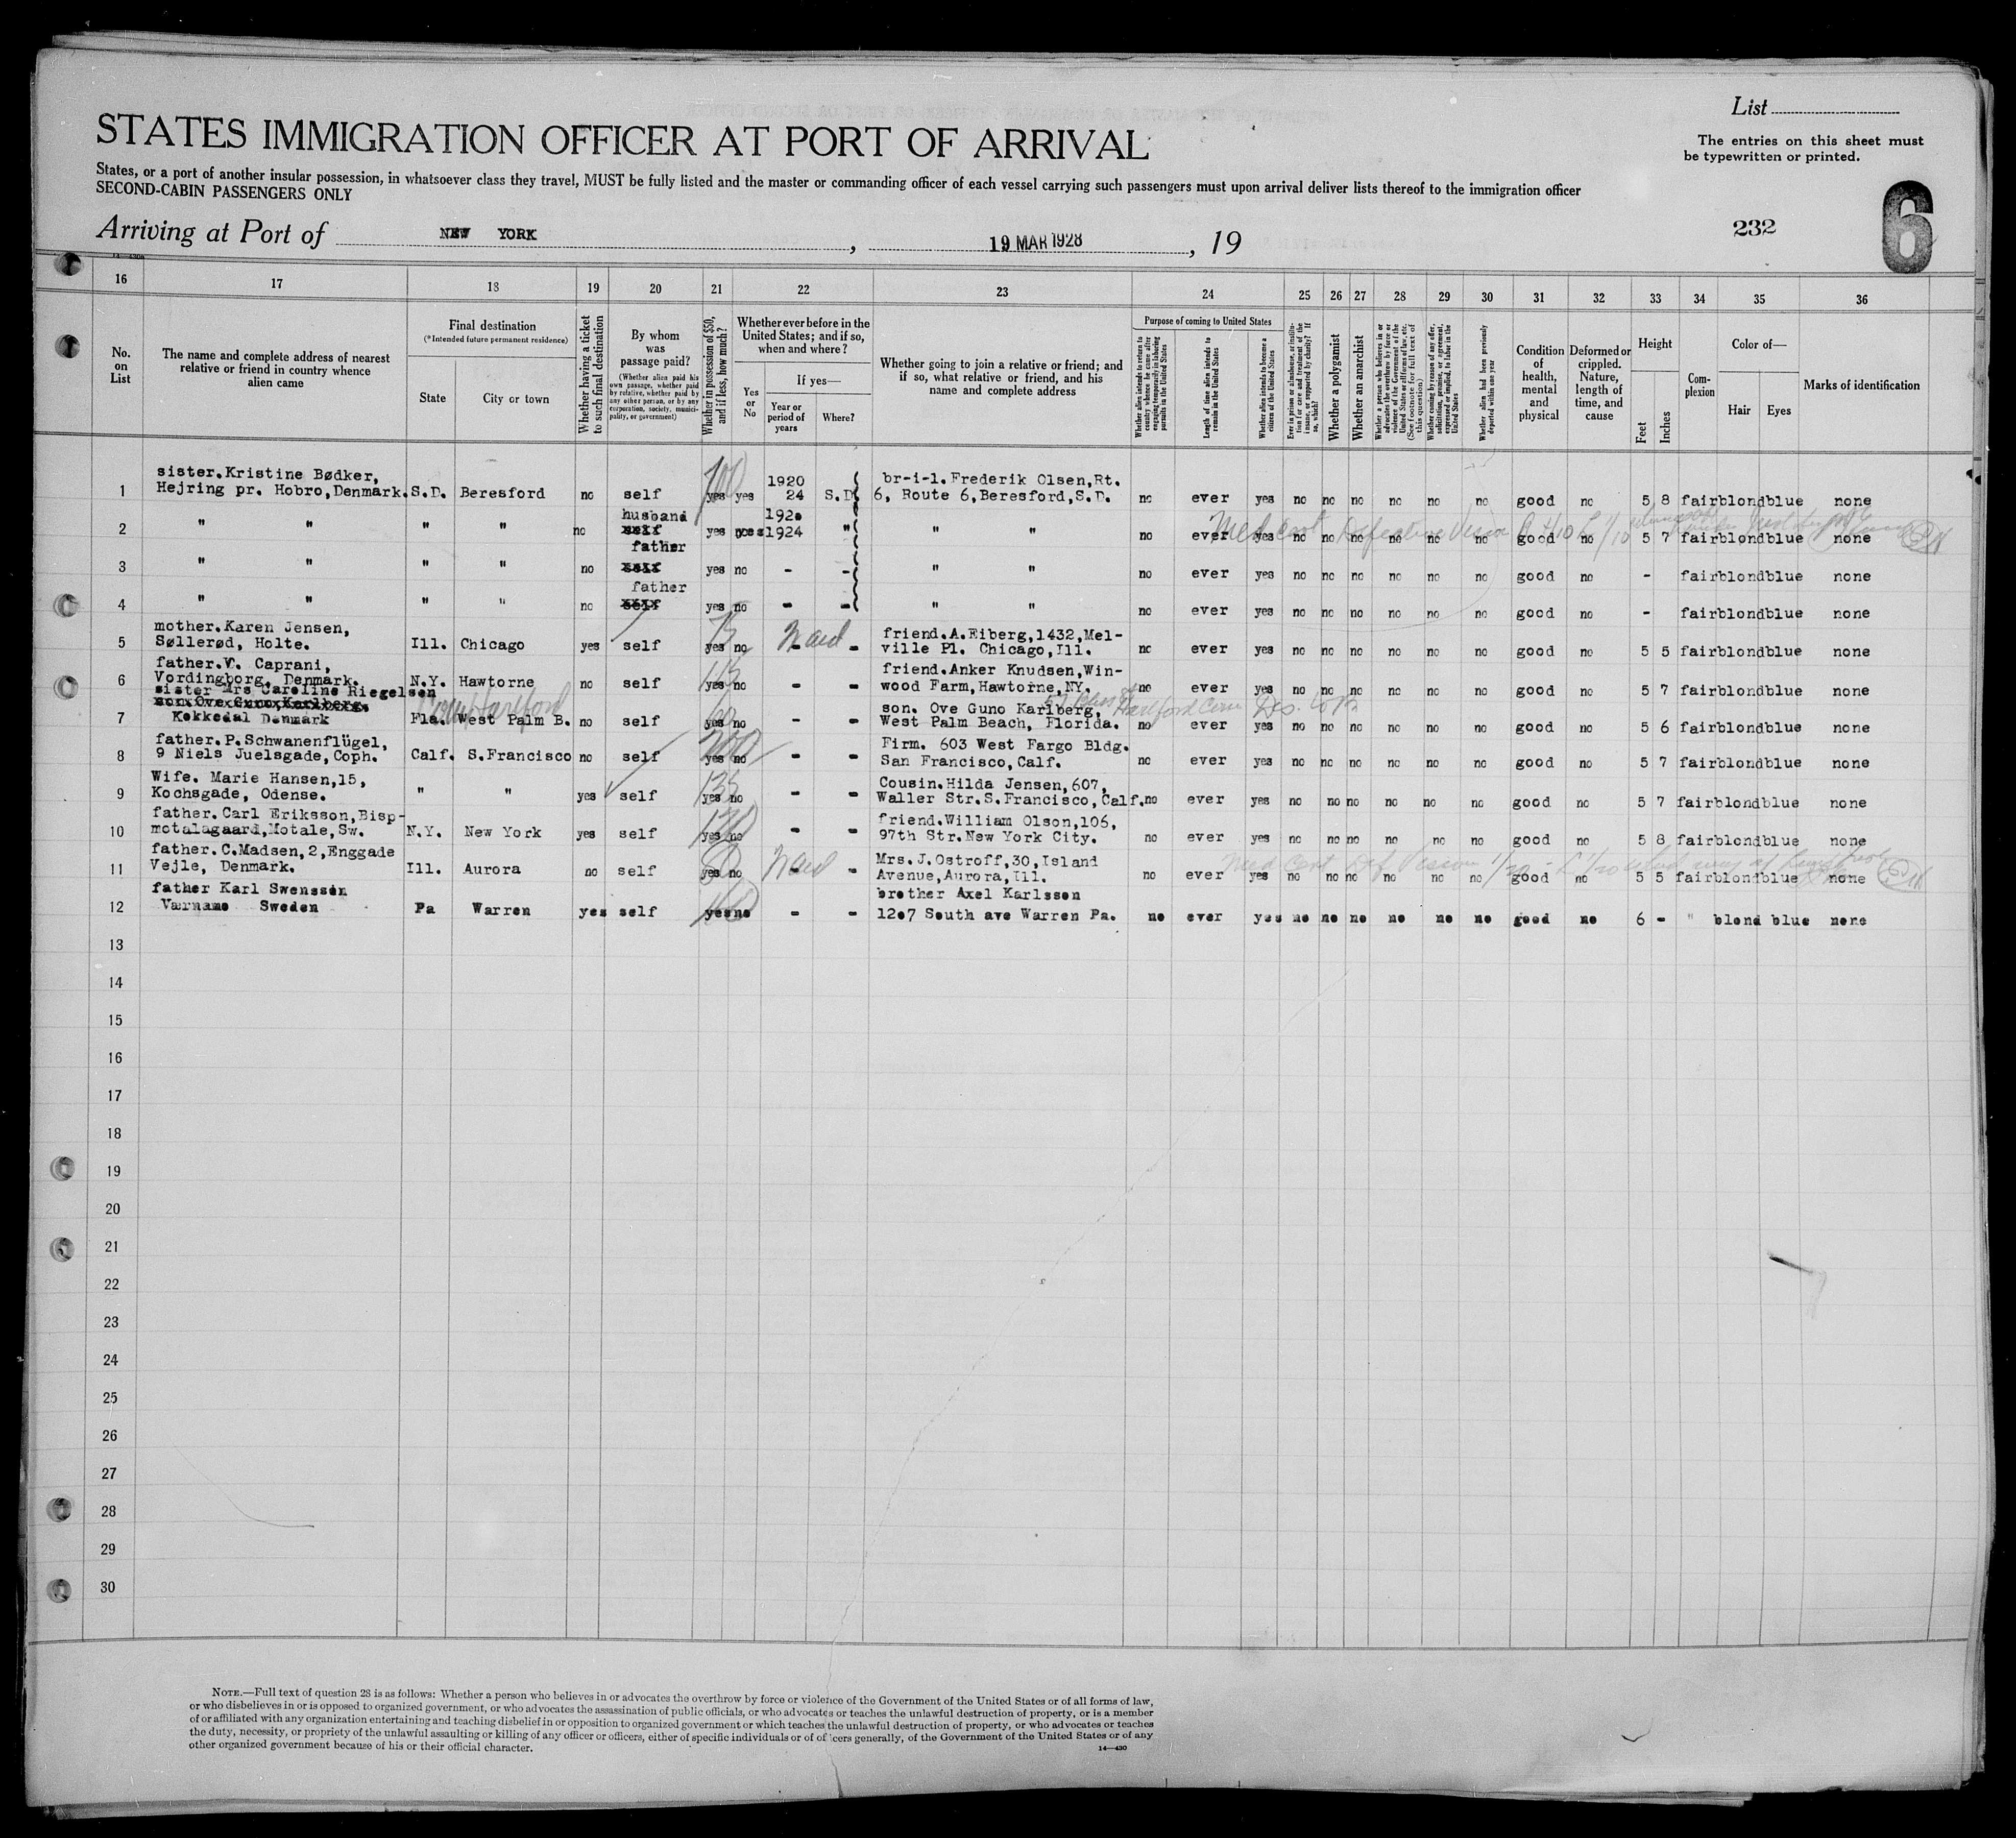 List
The entries on this sheet must
be typewritten or printed.
STATES IMMIGRATION OFFICER AT PORT OF ARRIVAL
States, or a port of another insular possession, in whatsoever class they travel, MUST be fully listed and the master or commanding officer of each vessel carrying such passengers must upon arrival deliver lists thereof to the immigration officer
SECOND-CABIN PASSENGERS ONLY
Arriving at Port of NEW YORK, 19 MAR 1928, 19
232
6
16 17 18 19 20 21 22 23 24 25 26 27 28 29 30 31 32 33 34 35 36
No. on List
The name and complete address of nearest relative or friend in country whence alien came
Final destination
(*Intended future permanent residence)
State
City or town
Whether having a ticket to such final destination
By whom was passage paid?
(Whether alien paid his own passage, whether paid by relative, whether paid by any other person, or by any corporation, society, municipality, or government)
Whether in possession of $50, and if less, how much?
Whether ever before in the United States; and if so, when and where?
Yes or No
If yes—
Year or period of years
Where?
Whether going to join a relative or friend; and if so, what relative or friend, and his name and complete address
Purpose of coming to United States
Whether alien intends to return to country whence he came after engaging temporarily in laboring pursuits in the United States
Length of time alien intends to remain in the United States
Whether alien intends to become a citizen of the United States
Ever in prison or almshouse, or institution for care and treatment of the insane, or supported by charity? If so, which?
Whether a polygamist
Whether an anarchist
Whether a person who believes in or advocates the overthrow by force or violence of the Government of the United States or all forms of law, etc. (See footnote for full text of this question)
Whether coming by reason of any offer, solicitation, promise, or agreement, expressed or implied, to labor in the United States
Whether alien had been previously deported within one year
Condition of health, mental and physical
Deformed or crippled. Nature, length of time, and cause
Height
Feet
Inches
Complexion
Color of—
Hair
Eyes
Marks of identification
sister.Kristine Bødker, 1920 br-i-l.Frederik Olsen,Rt.
1 Hejring pr. Hobro,Denmark. S.D. Beresford no self yes yes 24 S.D. 6, Route 6,Beresford,S.D. no ever yes no no no no no no good no 5 8 fair blond blue none
100
husband 1920
2 " " " " no self yes yes 1924 " " " no ever yes no no no no no no good no 5 7 fair blond blue none
Med cert Defective Vision
father
3 " " " " no self yes no - - " " no ever yes no no no no no no good no - fair blond blue none
father
4 " " " " no self yes no - - " " no ever yes no no no no no no good no - fair blond blue none
mother.Karen Jensen, friend.A.Eiberg,1432,Mel-
5 Søllerød, Holte. Ill. Chicago yes self yes no - - ville Pl. Chicago,Ill. no ever yes no no no no no no good no 5 5 fair blond blue none
75
father.V. Caprani, friend.Anker Knudsen,Win-
6 Vordingborg, Denmark. N.Y. Hawtorne no self yes no - - wood Farm,Hawtorne,NY. no ever yes no no no no no no good no 5 7 fair blond blue none
115
sister Mrs Caroline Riegelsen
son.Ove Guno Karlberg, son. Ove Guno Karlberg,
7 Kokkedal Denmark Fla. West Palm B. no self yes no - - West Palm Beach, Florida. no ever yes no no no no no no good no 5 6 fair blond blue none
Hartford
Hartford Conn
father.P.Schwanenflügel, Firm. 603 West Fargo Bldg.
8 9 Niels Juelsgade,Coph. Calf. S.Francisco no self yes no - - San Francisco,Calf. no ever yes no no no no no no good no 5 7 fair blond blue none
200
Wife. Marie Hansen,15, Cousin.Hilda Jensen,607,
9 Kochsgade, Odense. " " yes self yes no - - Waller Str.S.Francisco,Calf. no ever yes no no no no no no good no 5 7 fair blond blue none
135
father.Carl Eriksson,Bisp- friend.William Olson,106,
10 motalagaard,Motale,Sw. N.Y. New York yes self yes no - - 97th Str.New York City. no ever yes no no no no no no good no 5 8 fair blond blue none
father.C.Madsen,2,Enggade Mrs.J.Ostroff,30,Island
11 Vejle, Denmark. Ill. Aurora no self yes no - Avenue,Aurora,Ill. no ever yes no no no no no no good no 5 5 fair blond blue none
Med Cert Def Vision
father Karl Swenssen brother Axel Karlssen
12 Værnamo Sweden Pa Warren yes self yes no - - 1207 South ave Warren Pa. no ever yes no no no no no no good no 6 - " blond blue none
13
14
15
16
17
18
19
20
21
22
23
24
25
26
27
28
29
30
NOTE.—Full text of question 28 is as follows: Whether a person who believes in or advocates the overthrow by force or violence of the Government of the United States or of all forms of law,
or who disbelieves in or is opposed to organized government, or who advocates the assassination of public officials, or who advocates or teaches the unlawful destruction of property, or is a member
of or affiliated with any organization entertaining and teaching disbelief in or opposition to organized government or which teaches the unlawful destruction of property, or who advocates or teaches
the duty, necessity, or propriety of the unlawful assaulting or killing of any officer or officers, either of specific individuals or of officers generally, of the Government of the United States or of any
other organized government because of his or their official character.
14—430